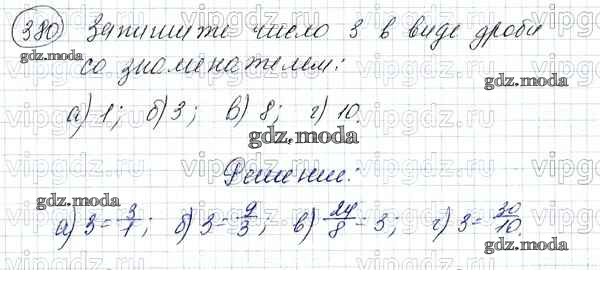 380 Запишите число 3 в виде дроби
со знаменателем:
а) 1; б) 3; в) 8; г) 10.
Решение:
а) 3 = 3/1; б) 3 = 9/3; в) 24/8 = 3; г) 3 = 30/10.
gdz.moda
gdz.moda
gdz.moda
gdz.moda
gdz.moda
vipgdz.ru